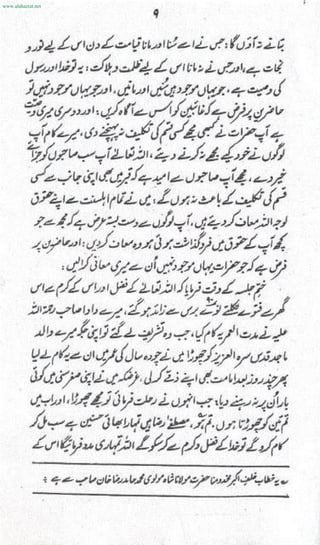 www.alahazrat.net
۹
بتانے نہ آؤں گا؛ جس نے اسے سُنا اور مانا قیامت کے دن اس کے لیے نور و
نجات ہے، اور جس نے نہ مانا اس کے لیے ظلمت و ہلاکت؛ یہ تو خدا اور رسول
کی وصیت ہے، جو یہاں موجود ہیں سُنیں اور مانیں، اور جو یہاں موجود نہیں تو
حاضرین پر فرض ہے کہ غائبین کو اس سے آگاہ کریں؛ اور دوسری میری وصیت
ہے آپ حضرات نے کبھی مجھے کسی قسم کی تکلیف نہ پہنچنے دی، میرے کام آپ
لوگوں نے خود کیے مجھے نہ کرنے دیے، اللہ تعالےٰ آپ سب صاحبوں کو جزائے
خیر دے، مجھے آپ صاحبوں سے امید ہے کہ قبر میں بھی اپنی جانب سے کسی
قسم کی تکلیف کے باعث نہ ہوں گے، میں نے تمام اہلسنت سے اپنے حقوق
لوجہ اللہ معاف کر دیے ہیں، آپ لوگوں سے دست بستہ عرض ہے کہ مجھ سے جو
کچھ آپ کے حقوق میں فروگذاشت ہوئی ہو وہ معاف کردیں؛ اور حاضرین پر
فرض ہے کہ جو حضرات یہاں موجود نہیں اُن سے میری معافی کرالیں؛
ختمِ جلسہ کے وقت فرمایا کہ اللہ تعالےٰ کے فضل اور اس کے کرم سے اس
گھر سے فتوے نکلتے نوّے برس سے زائد ہو گئے، میرے دادا صاحب رحمۃ اللہ
علیہ نے مدت العمر یہ کام کیا، جب وہ تشریف لے گئے تو اپنی جگہ میرے والد
ماجد قدس سرہ العزیز کو چھوڑا میں نے چودہ سال کی عمر میں ان سے یہ کام لے لیا
پھر چند روز بعد امامت بھی اپنے ذمے کر لی۔ غرضکہ میں نے اپنی صغر سنی میں کوئی
بار اُن پر نہ رہنے دیا؛ جب انہوں نے رحلت فرمائی تو مجھے چھوڑا، اور اب میں
تم تین کو چھوڑتا ہوں، تم ہو، مصطفٰے رضا ہیں تمہارا بھائی حسنین ہے سب مل کر
کام کرو گے تو خدا کے فضل و کرم سے کر سکو گے اللہ تمہاری مدد فرمائیگا اس کے
یہ خطاب خلف اکبر مخدومنا حضرت مولانا شاہ مولوی محمد حامد رضا خان صاحب سے ہے